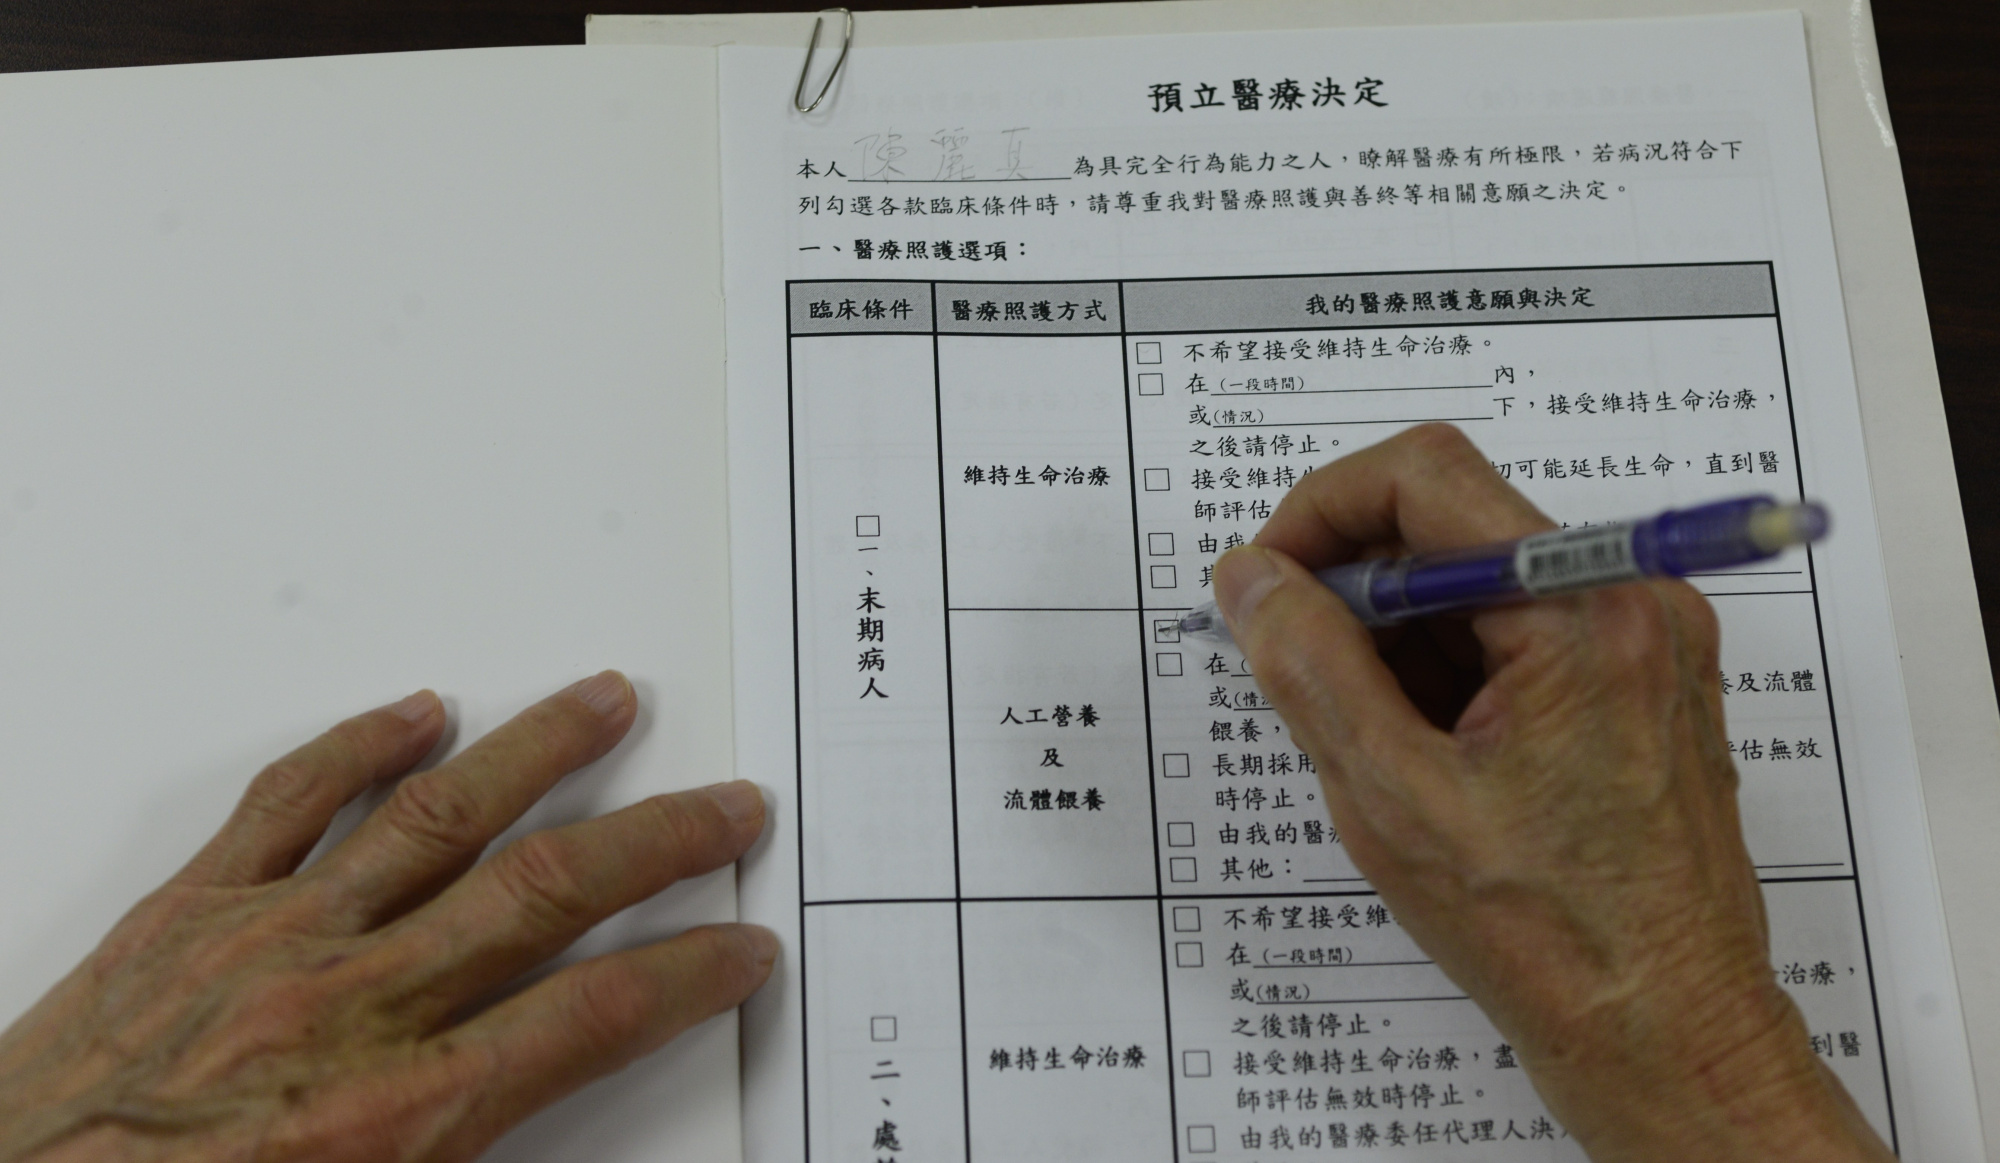 預立醫療決定
本人陳麗真為具完全行為能力之人，瞭解醫療有所極限，若病況符合下
列勾選各款臨床條件時，請尊重我對醫療照護與善終等相關意願之決定。
一、醫療照護選項：
臨床條件 醫療照護方式 我的醫療照護意願與決定
□一、末期病人
維持生命治療
□ 不希望接受維持生命治療。
□ 在(一段時間)內，
或(情況)下，接受維持生命治療，
之後請停止。
□ 接受維持 切可能延長生命，直到醫
師評估
□ 由我
□
人工營養
及
流體餵養
☑
□ 在
或(情 養及流體
餵養，
□ 長期採用 評估無效
時停止。
□ 由我的醫
□ 其他：
□二、
維持生命治療
□ 不希望接受維
□ 在(一段時間)
或(情況) 治療，
之後請停止。
□ 接受維持生命治療，盡 到醫
師評估無效時停止。
□ 由我的醫療委任代理人決